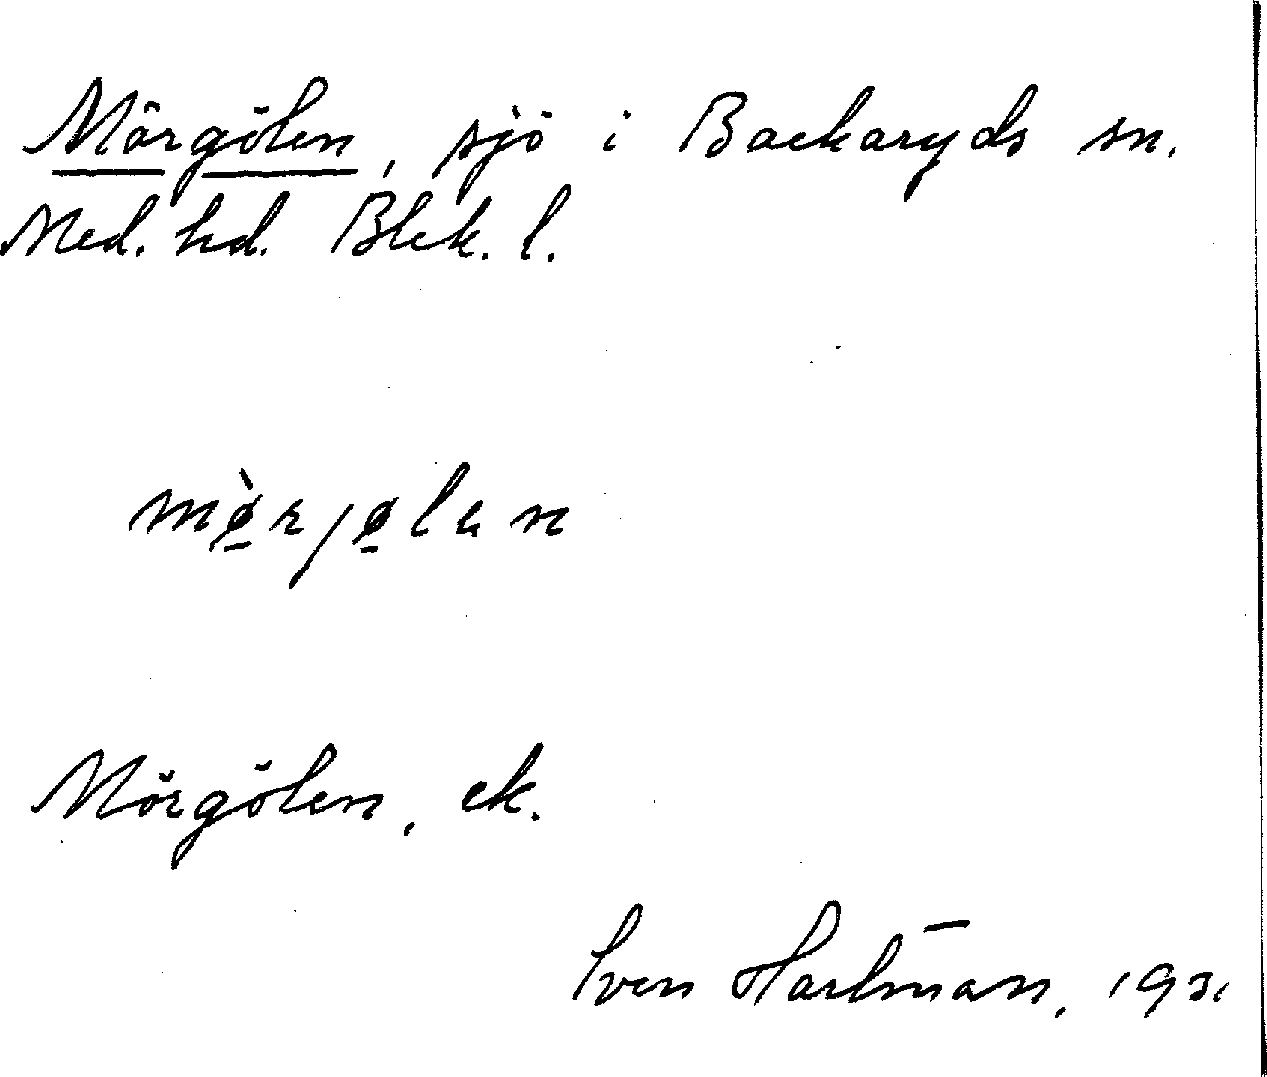 Mörgölen, sjö i Backaryds sn.
Med. hd. Blek. l.
mø̱̀rjø̱lɘn
Mörgölen, ek.
Sven Hartman, 1931